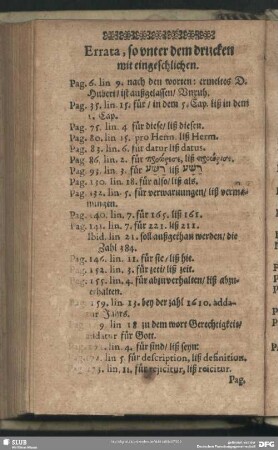 Errata, so vnter dem drucken
mit eingeschlichen.
Pag. 6. lin 9. nach den worten: ermeltes D.
Hubert/ ist außgelassen/ Vnruh.
Pag. 35. lin. 15. für/ in dem 5. Cap. liß in dem
1. Cap.
Pag. 75. lin. 4 für diese/ liß diesen.
Pag. 80. lin. 15. pro Henn. liß Herrn.
Pag. 83. lin. 6. für datur liß datus.
Pag. 86. lin. 2. für
Pag. 93. lin. 3. für רשע liß רשע
Pag. 130. lin. 18. für also/ liß als.
Pag. 132. lin. 5. für verwarnungen/ liß verma-
nungen.
Pag. 140. lin. 7. für 165. liß 161.
Pag. 141. lin. 7. für 221. liß 211.
Ibid. lin. 21. soll außgethan werden/ die
Zahl 384.
Pag. 146. lin. 11. für sie/ liß hie.
Pag. 152. lin. 3. für zeit/ liß zeit.
Pag. 155. lin. 4. für abzuverhalten/ liß
erhalten.
Pag. 159. lin 13. bey der zahl 1610. adda-
tur Jahrs.
9. lin 18 zu dem wort Gerechtigkeit/
addatur für Gott.
lin. 4. für sind/ liß seyn.
lin 5 für description, liß definition.
lin. 11. für rejicitur, liß reicitur.
Pag.
SLUB
Wir führen Wissen.
DFG